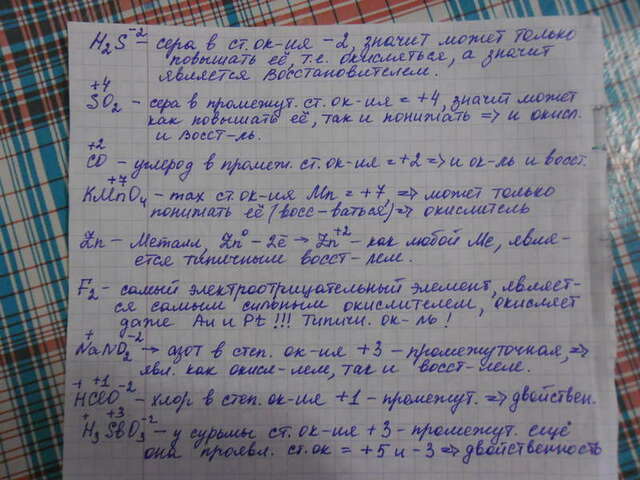 H₂S⁻² – сера в ст.ок-ия -2, значит может только
повышать её, т.е. окисляться, а значит
является восстановителем.
+4
SO₂ – сера в промежут. ст. ок-ия = +4, значит может
как повышать её, так и понижать => и окисл.
и восст-ль.
+2
CO – углерод в промеж. ст. ок-ия = +2 => и ок-ль и восст.
+7
KMnO₄ – max ст. ок-ия Mn = +7, => может только
понижать её (восс-ваться) => окислитель
Zn – Металл, Zn⁰ – 2ē → Zn⁺² – как любой Ме, явля-
ется типичным восст-лем.
F₂ – самый электроотрицательный элемент, являет-
ся самым сильным окислителем, окисляет
даже Au и Pt !!! Типичн. ок-ль !
+ -2
NaNO₂ → азот в степ. ок-ия +3 – промежуточная, =>
явл. как окисл-лем, так и восст-лем.
+ +1 -2
HClO – хлор в степ. ок-ия +1 – промежут. => двойствен.
+ +3 -2
H₃SbO₃ – у сурьмы ст. ок-ия +3 – промежут. ещё
она проявл. ст. ок = +5 и -3 => двойственность